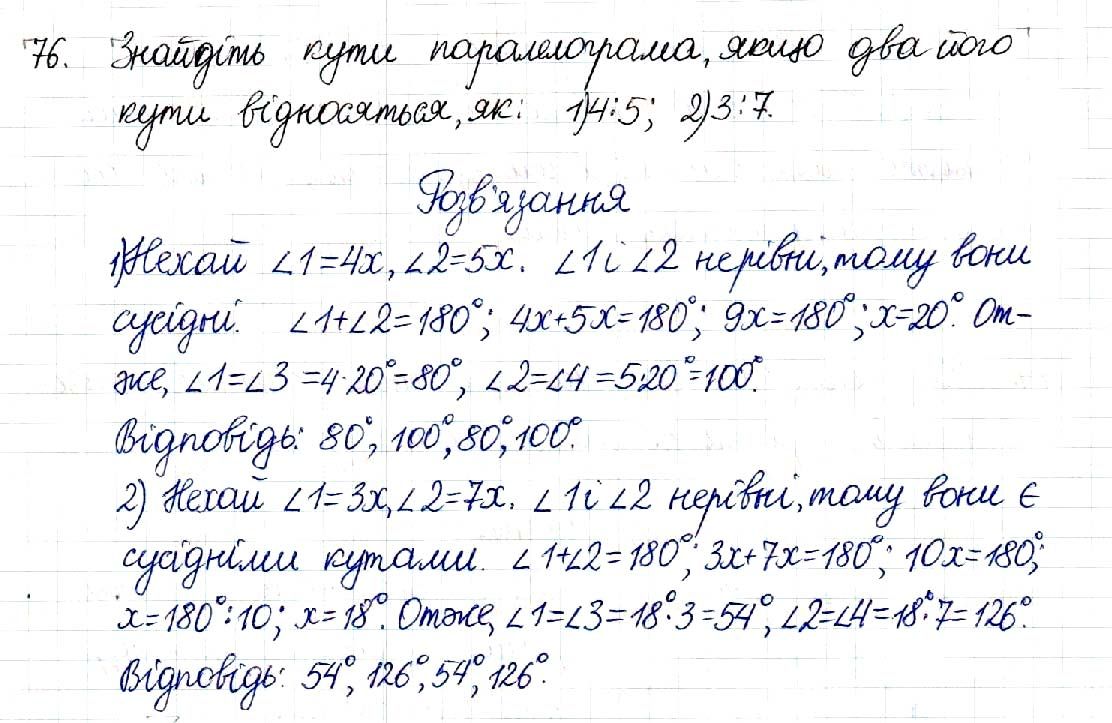 76. Знайдіть кути паралелограма, якщо два його
кути відносяться, як: 1)4:5; 2)3:7.
Розв'язання
1)Нехай ∠1=4x, ∠2=5x. ∠1 і ∠2 нерівні, тому вони
сусідні. ∠1+∠2=180°; 4x+5x=180°; 9x=180°; x=20°. От-
же, ∠1=∠3=4·20°=80°, ∠2=∠4=5·20°=100°.
Відповідь: 80°, 100°, 80°, 100°.
2) Нехай ∠1=3x, ∠2=7x. ∠1 і ∠2 нерівні, тому вони є
сусідніми кутами. ∠1+∠2=180°; 3x+7x=180°; 10x=180°;
x=180°:10; x=18°. Отже, ∠1=∠3=18°·3=54°, ∠2=∠4=18°·7=126°.
Відповідь: 54°, 126°, 54°, 126°.